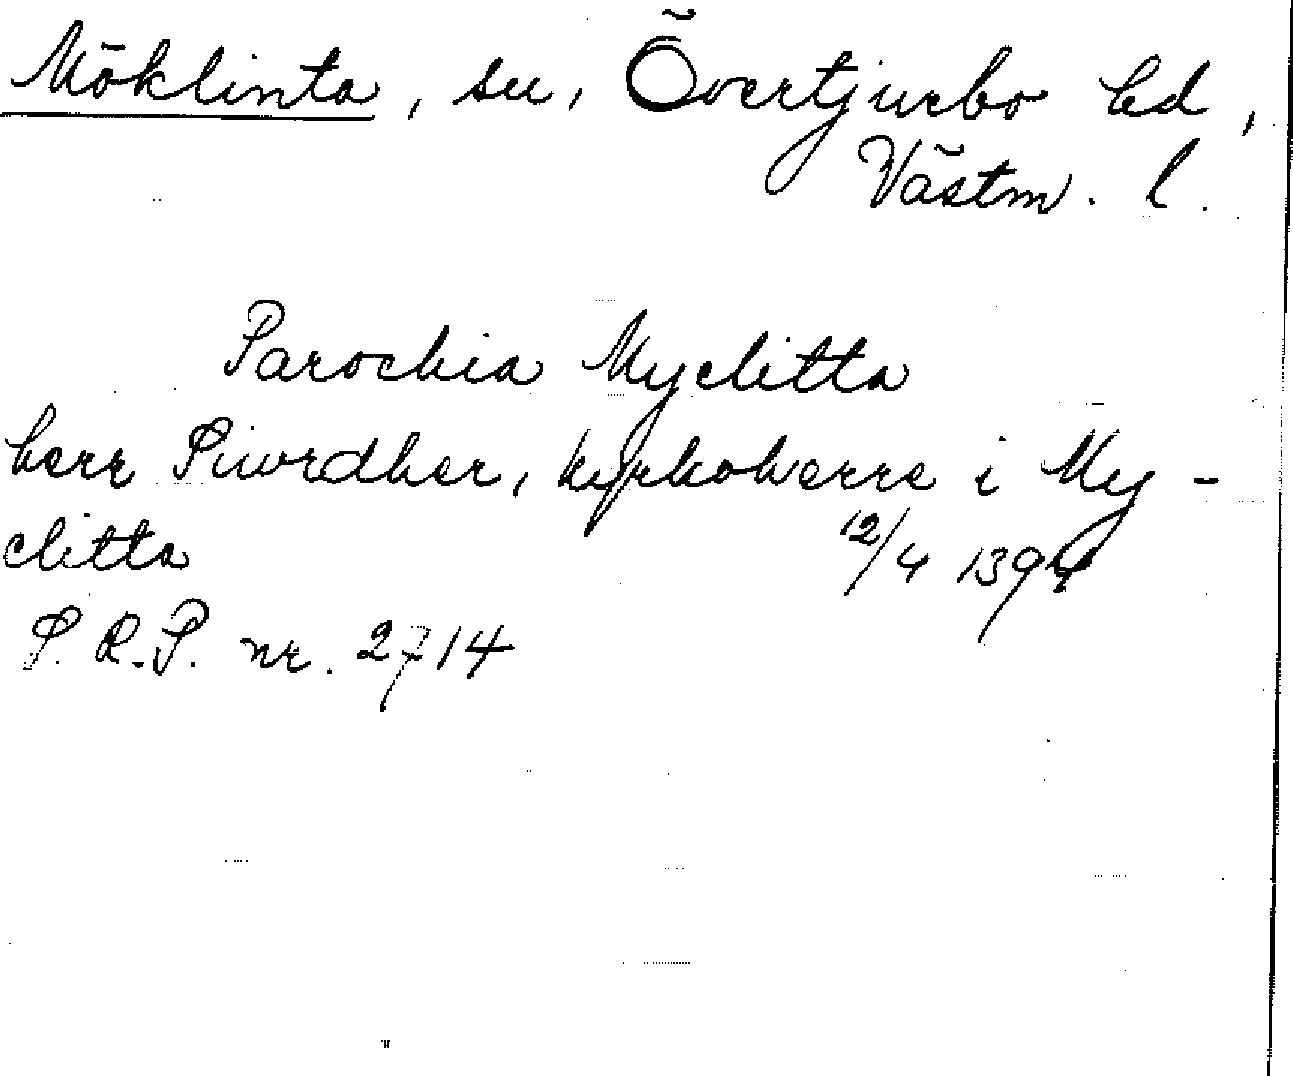 Möklinta, sn, Övertjurbo hd,
Västm. l.
Parochia Myclitta
herr Siwrdher, kyrkoherre i My-
clitta 12/4 1394
S.R.P. nr. 2714